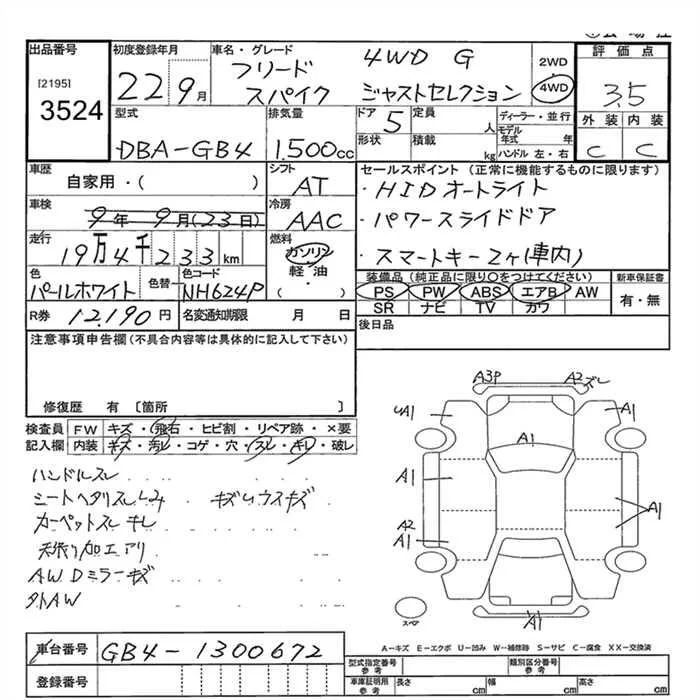 出品番号
[2195]
3524
初度登録年月
22 9月
車名・グレード
フリード
スパイク
4WD G
ジャストセレクション
2WD
4WD
評価点
3.5
外装 内装
C C
型式
DBA-GB4
排気量
1.500cc
ドア
5
定員
人
形状
積載
kg
ディーラー・並行
モデル
年式 年
ハンドル 左・右
車歴
自家用・( )
シフト
AT
車検
9年 9月(23日)
冷房
AAC
走行
19万4千233km
燃料
ガソリン
軽・油
( )
色
パールホワイト
色替
色コード
NH624P
R券
12.190円
名変通知期限 月 日
セールスポイント(正常に機能するものに限ります)
・HIDオートライト
・パワースライドドア
・スマートキー2ヶ(車内)
装備品(純正品に限り○をつけてください)
PS PW ABS エアB AW
SR ナビ TV カワ
新車保証書
有・無
後日品
注意事項申告欄(不具合内容等は具体的に記入して下さい)
修復歴 有 〔箇所 〕
検査員
記入欄
FW キズ・飛石・ヒビ割・リペア跡・×要
内装 キズ・汚レ・コゲ・穴・スレ・キレ・破レ
ハンドルスレ
シートヘタリスレシミ キズレウスキズ
カーペットスレ キレ
天張り加工アリ
AWDミラーキズ
外AW
A3P
A2 ズレ
4A1
A1
A1
A1
A1
A2
A1
A1
スペア
A-キズ E-エクボ U-凹み W-補修跡 S-サビ C-腐食 XX-交換済
車台番号
GB4-1300672
登録番号
型式指定番号
参考
類別区分番号
参考
車庫証明用
参考
長さ cm
幅 cm
高さ cm